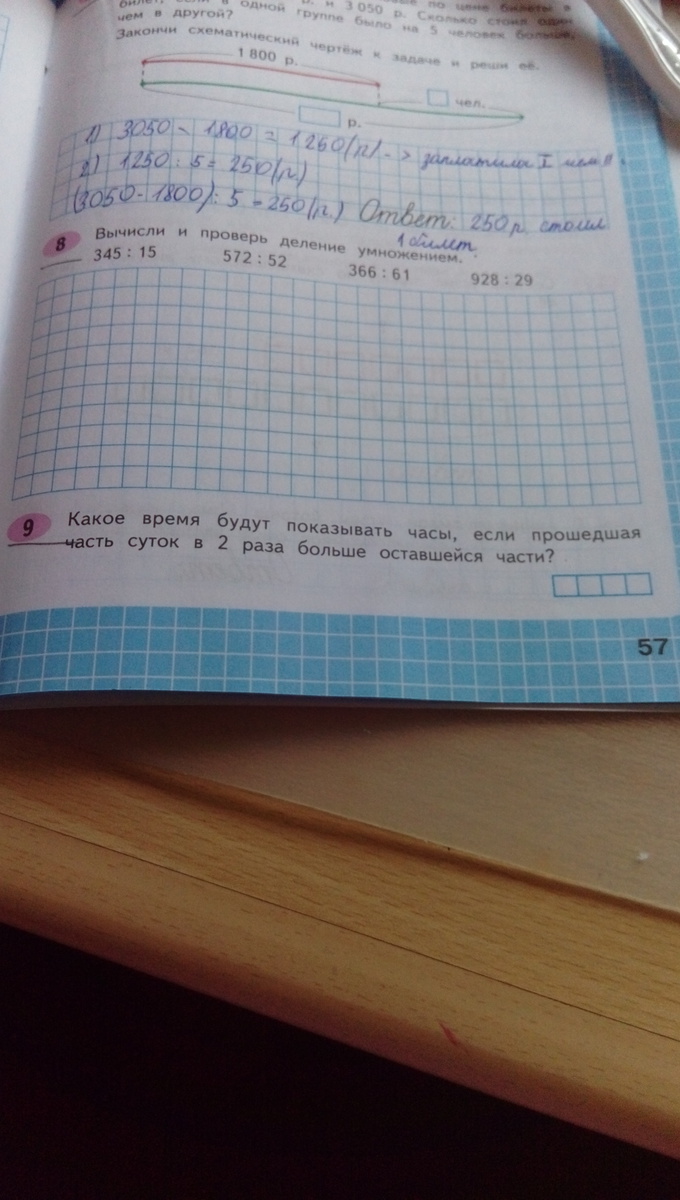 р. и 3 050 р. Сколько стоил один
билет, если в одной группе было на 5 человек больше,
чем в другой?
Закончи схематический чертёж к задаче и реши её.
1 800 р.
чел.
р.
1) 3050 - 1800 = 1250 (р.) -> заплатила I
2) 1250 : 5 = 250 (р.)
(3050 - 1800) : 5 = 250 (р.) Ответ: 250 р. стоил
1 билет.
8 Вычисли и проверь деление умножением.
345 : 15 572 : 52 366 : 61 928 : 29
9 Какое время будут показывать часы, если прошедшая
часть суток в 2 раза больше оставшейся части?
57